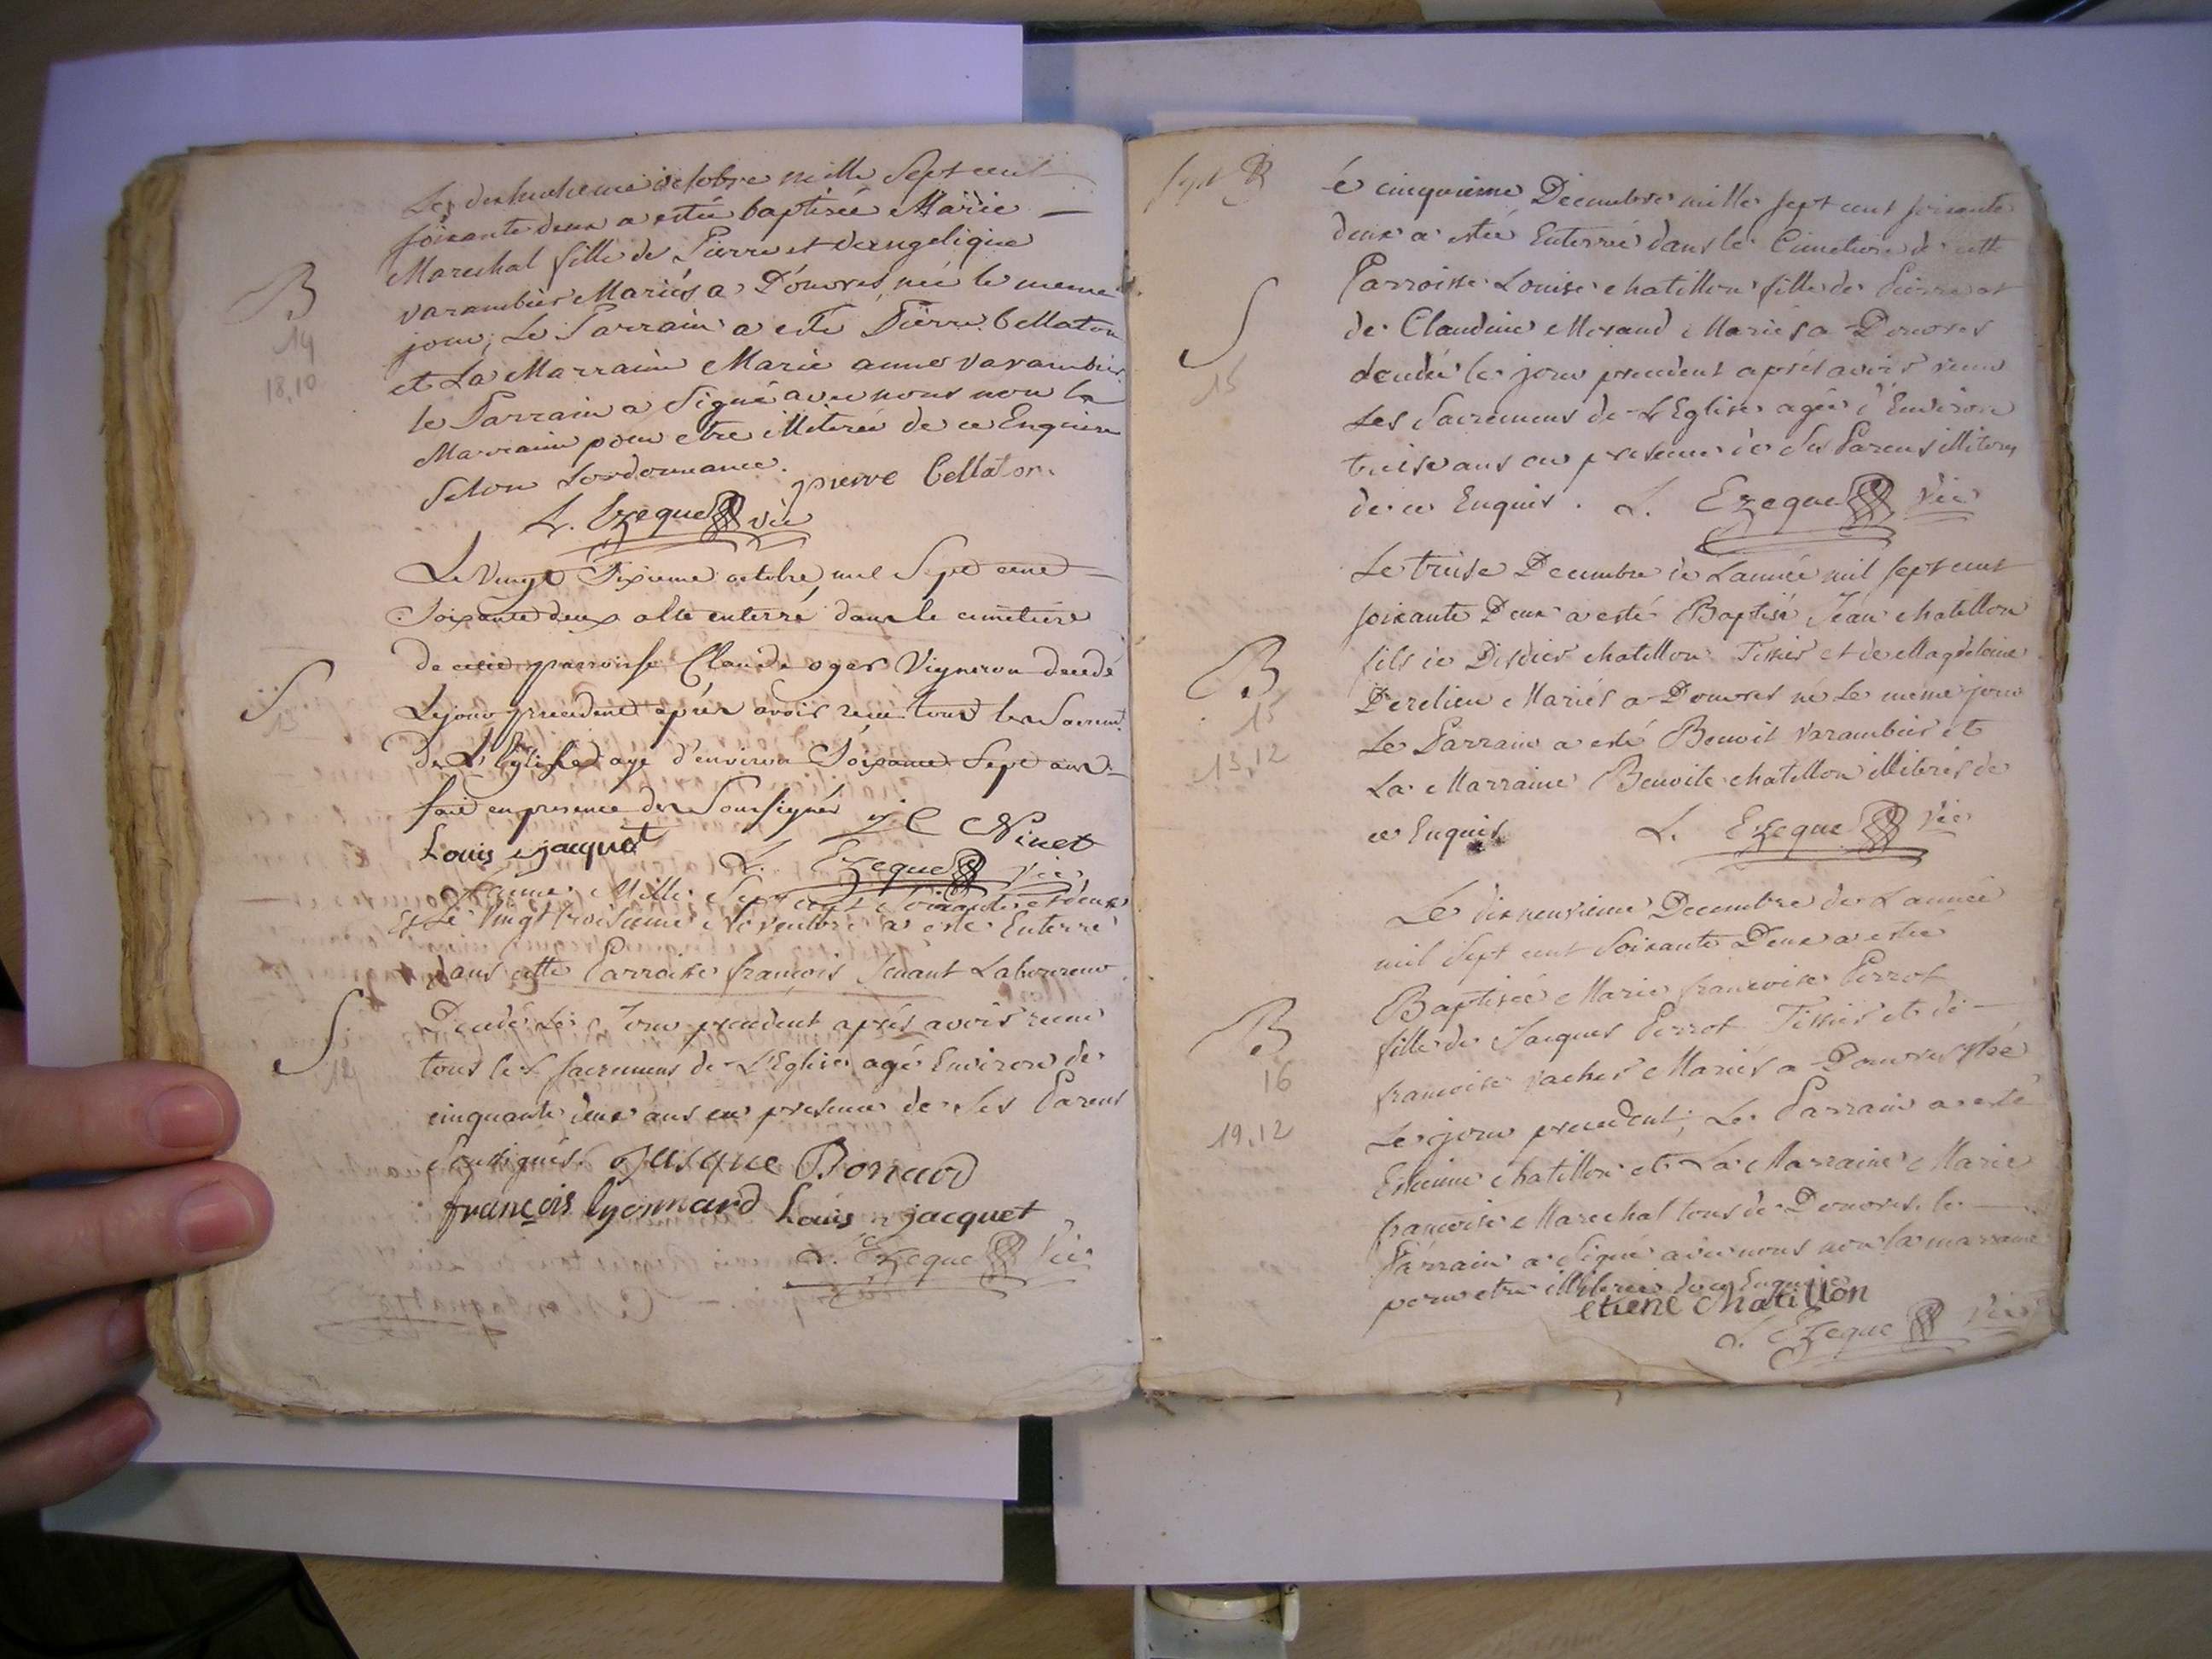 Le dixhuitieme octobre mille Sept cent
soixante deux a estée baptisée Marie
Mareshal fille de Pierre et d'angelique
varambier Mariés a Douvres, née le meme
jour; Le Parrain a esté Pierre bellaton
et La Marraine Marie anne varambier
le Parrain a signé avec nous non la
Marraine pour etre illiterée de ce Enquise
Selon Lordonnance.
pierre bellaton
L. Ezeque vic
B
14
18,10
Le vingt Sixieme octobre mil Sept cent
Soixante deux a ete enterré dans le cimetiere
de cette parroisse Claude oger Vigneron decedé
Le jour precedent après avoir reçu tous les Sacrem.
de L'Eglise agé d'environ Soixante Sept ans
fait en presence des Soussignés
Louis jacquet
Ninet
L. Ezeque vic
S
L'année Mille Sept cent Soixante et deux
et Le vingt troisieme Novembre a esté Enterré
dans cette Parroisse françois Laboureur
Decedé Le Jour precedent aprés avoir receu
tous les sacremens de L'Eglise agé Environ de
cinquante deux ans en presence de ses Parens
Sousignés.
Bonard
françois lyonnard Louis jacquet
L. Ezeque Vic
S
B
é cinquieme Decembre mille sept cent soixante
deux a estée Enterrée dans le Cimetiere de cette
Parroisse Louise chatillon fille de Pierre et
de Claudine Morand Mariés a Douvres
decedée le jour precedent aprés avoir receu
Les Sacremens de L'Eglise agée d'Environ
treise ans en presence de ses Parens illiterés
de ce Enquis. L. Ezeque Vic
S
15
Le treise Decembre de L'année mil sept cent
soixante Deux a esté Baptisé Jean chatillon
fils de Disdier chatillon Tissier et de Magdelaine
Derelieu Mariés a Douvres né Le meme jour
Le Parrain a esté Benoit Varambier et
La Marraine Benoite chatillon illiterés de
ce Enquis
L. Ezeque Vic
B
15
13,12
Le dixneuvieme Decembre de L'année
mil Sept cent Soixante Deux a estée
Baptisée Marie françoise Perrot
fille de Jacques Perrot Tissier et de
françoise vacher Mariés a Douvres née
Le jour precedent; Le Parrain a esté
Estienne chatillon et La Marraine Marie
françoise Marechal tous de Douvres. le
Parrain a signé avec nous non la marraine
pour etre illiterée de ce Enquise
etiene chatillon
L. Ezeque Vic
B
16
19,12